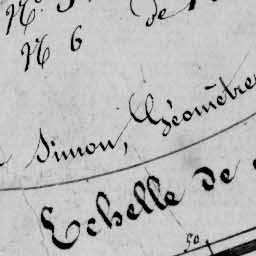 N.
de
N 6
Simon, Géomètre
Echelle de
50